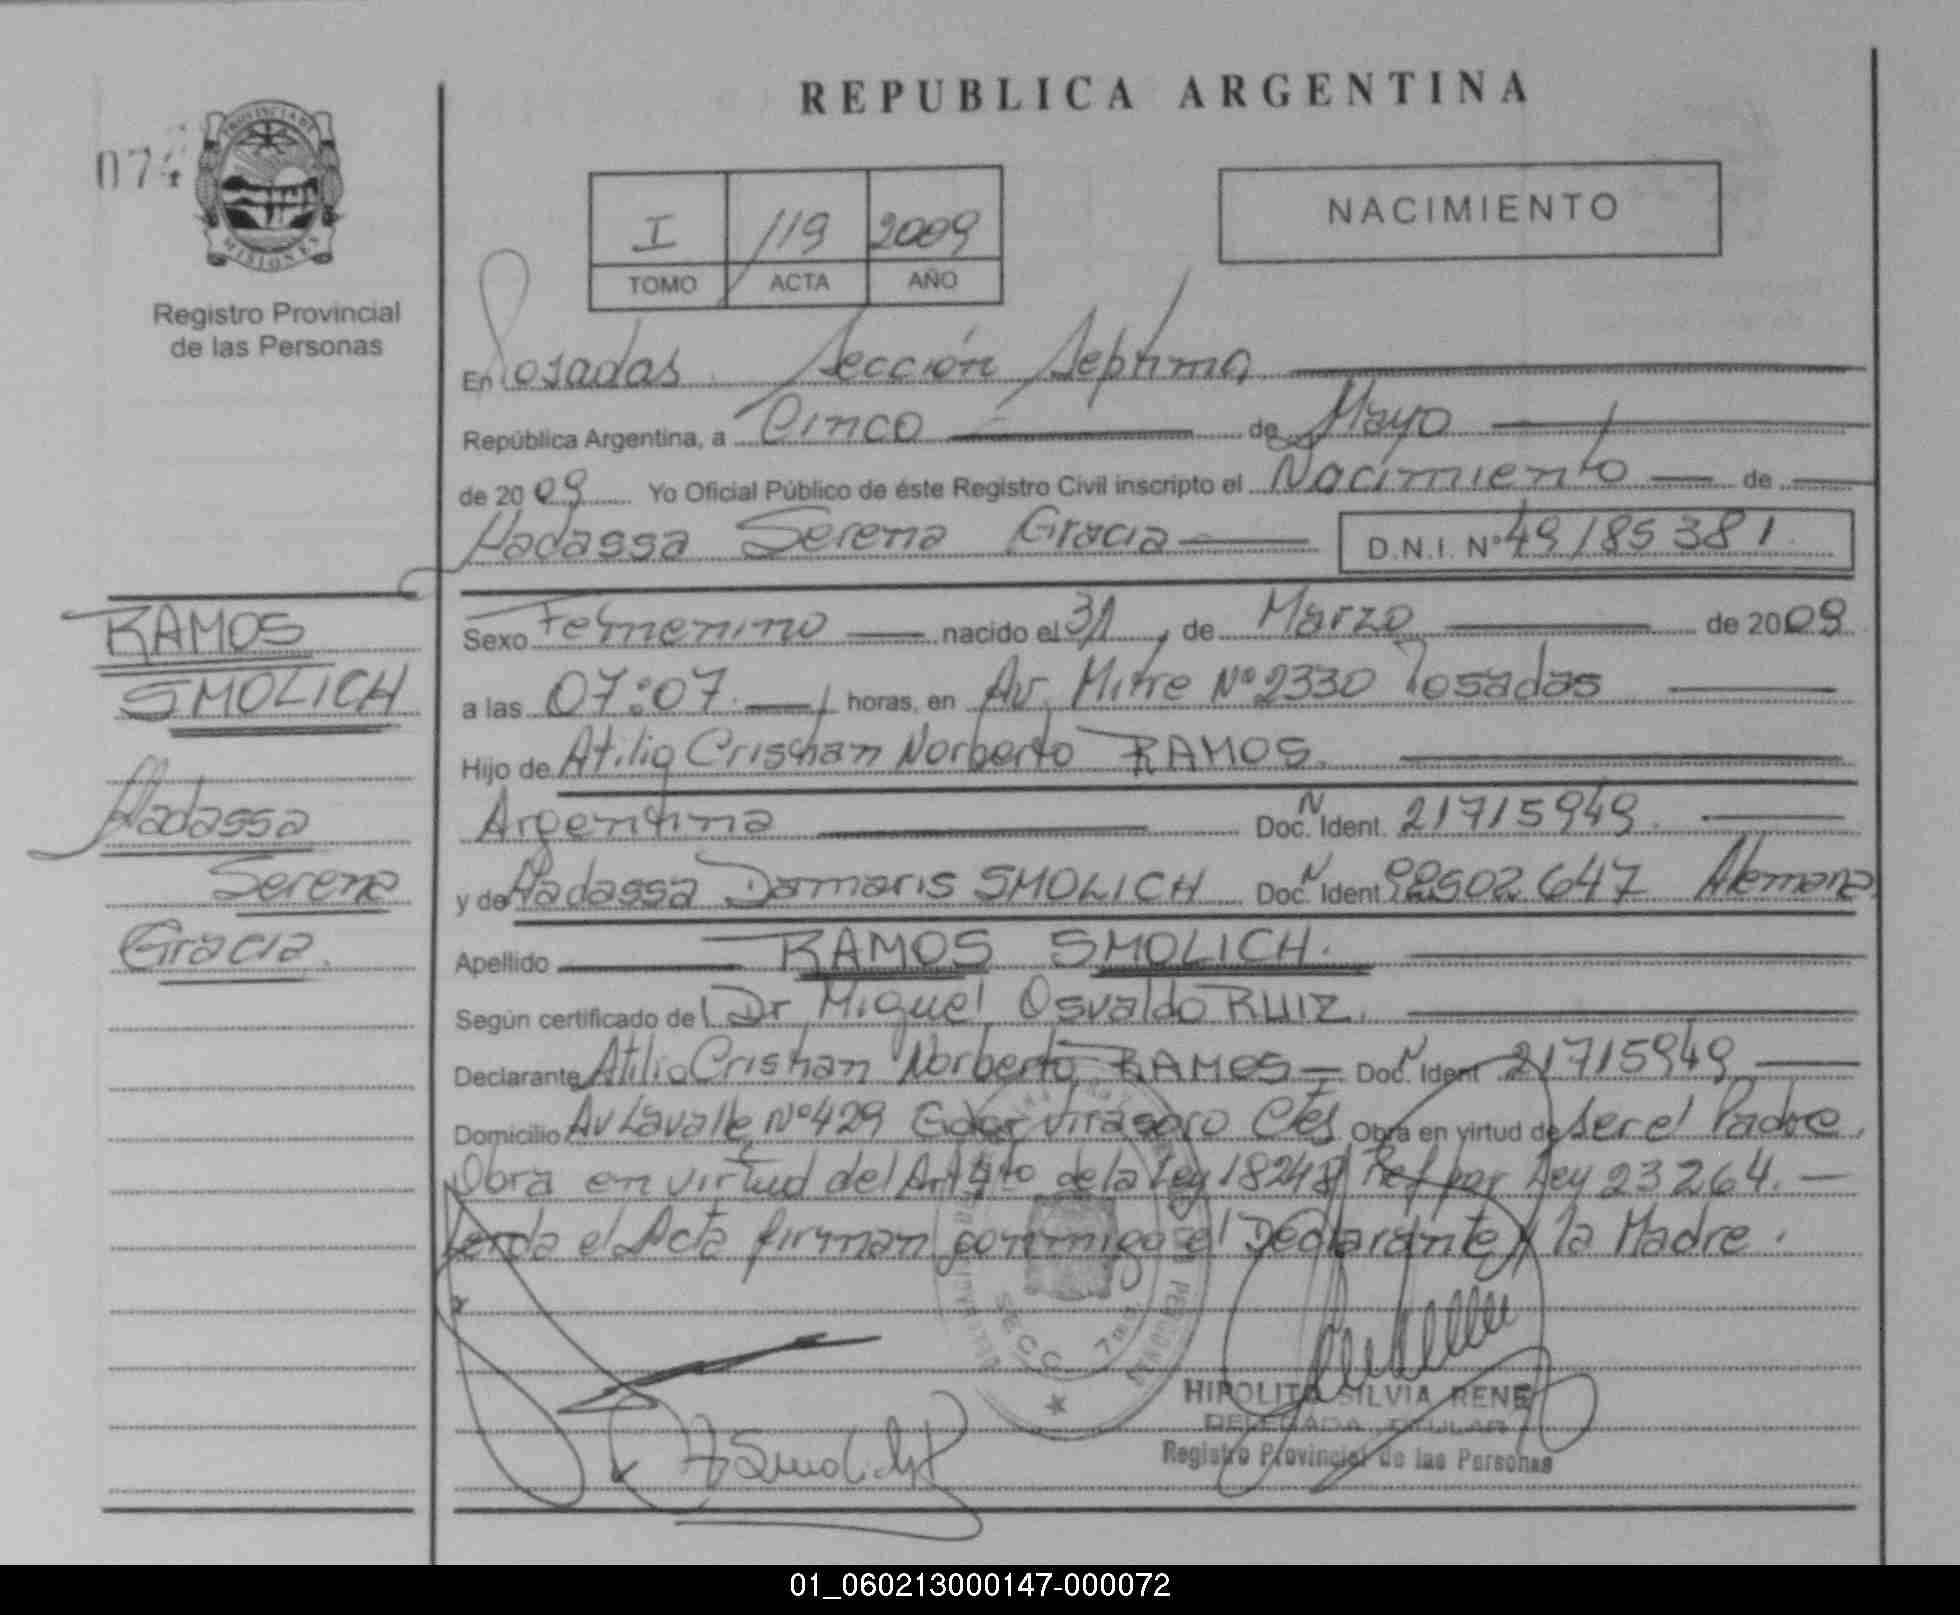 REPUBLICA ARGENTINA
074
PROVINCIA DE
MISIONES
Registro Provincial
de las Personas
I /119 2009
TOMO ACTA AÑO
NACIMIENTO
En Posadas. Sección Septima
República Argentina, a Cinco de Mayo
de 2009 Yo Oficial Público de éste Registro Civil inscripto el Nacimiento de
Hadassa Serena Gracia D.N.I. Nº 49185381.
RAMOS
SMOLICH
Hadassa
Serena
Gracia.
Sexo Femenino nacido el 31, de Marzo de 2009
a las 07:07. horas, en Av. Mitre Nº 2330 Posadas
Hijo de Atilio Cristhan Norberto RAMOS.
Argentina Doc. N Ident. 21715949.
y de Hadassa Damaris SMOLICH Doc. N Ident 92902647 Alemana
Apellido RAMOS SMOLICH.
Según certificado del Dr Miguel Osvaldo RUIZ.
Declarante Atilio Cristhan Norberto RAMOS Doc. N Ident 21715949
Domicilio Av Lavalle Nº 429 Gdor Virasoro Ctes Obra en virtud de ser el Padre.
Obra en virtud del Art 4to de la Ley 18248 Ref por Ley 23264.
Leida el Acta firman conmigo el Declarante y la Madre.
SECC. 7ma
HIPOLITO SILVIA RENE
DELEGADA TITULAR
Registro Provincial de las Personas
H Smolich
01_060213000147-000072